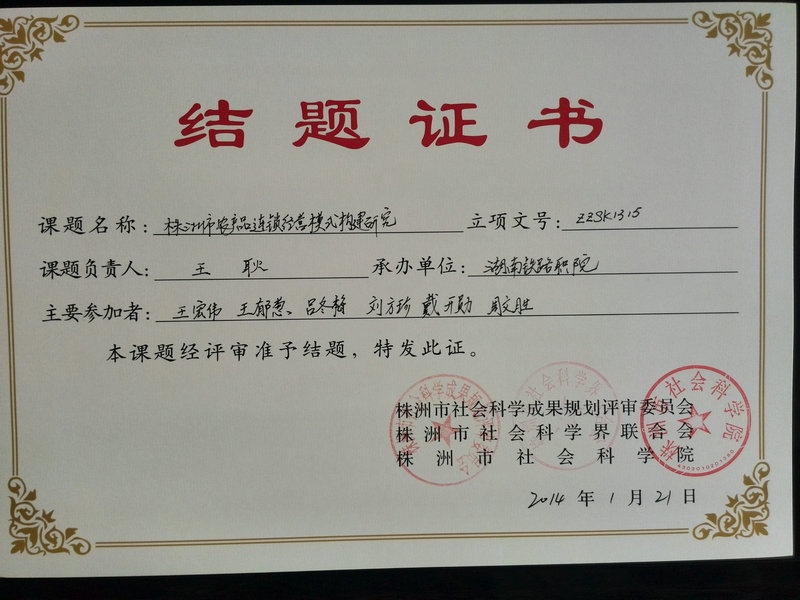 结题证书
课题名称：株洲市农产品连锁经营模式构建研究 立项文号：ZZSK1315
课题负责人：王耿 承办单位：湖南铁路职院
主要参加者：王宏伟 王郁葱、吕冬梅 刘方珍 戴开勋 周文胜
本课题经评审准予结题，特发此证。
株洲市社会科学成果规划评审委员会
株洲市社会科学界联合会
株洲市社会科学院
2014 年 1 月 21 日
株洲市社会科学院